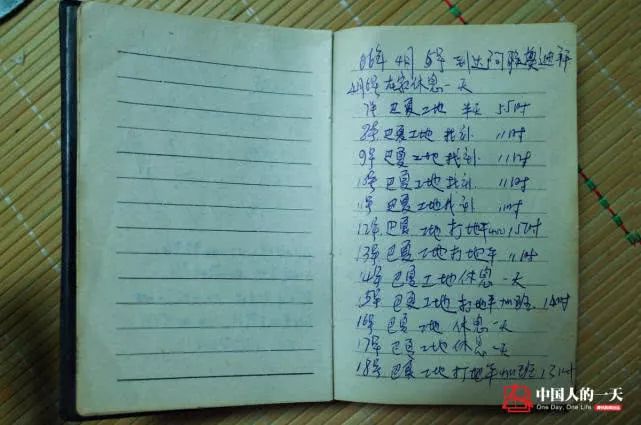 06年4月5号到达阿联酋迪拜
4月6号在家休息一天
7号 巴夏工地 半天 5.5小时
8号 巴夏工地 找刮 11小时
9号 巴夏工地 找刮 11小时
10号 巴夏工地 找刮 11小时
11号 巴夏工地 找刮 11小时
12号 巴夏工地 打地平加班 15小时
13号 巴夏工地 打地平 11小时
14号 巴夏工地休息一天
15号 巴夏工地打地平加班 14小时
16号 巴夏工地 休息一天
17号 巴夏工地 休息一天
18号 巴夏工地打地平加班 13小时
中国人的一天
One Day, One Life